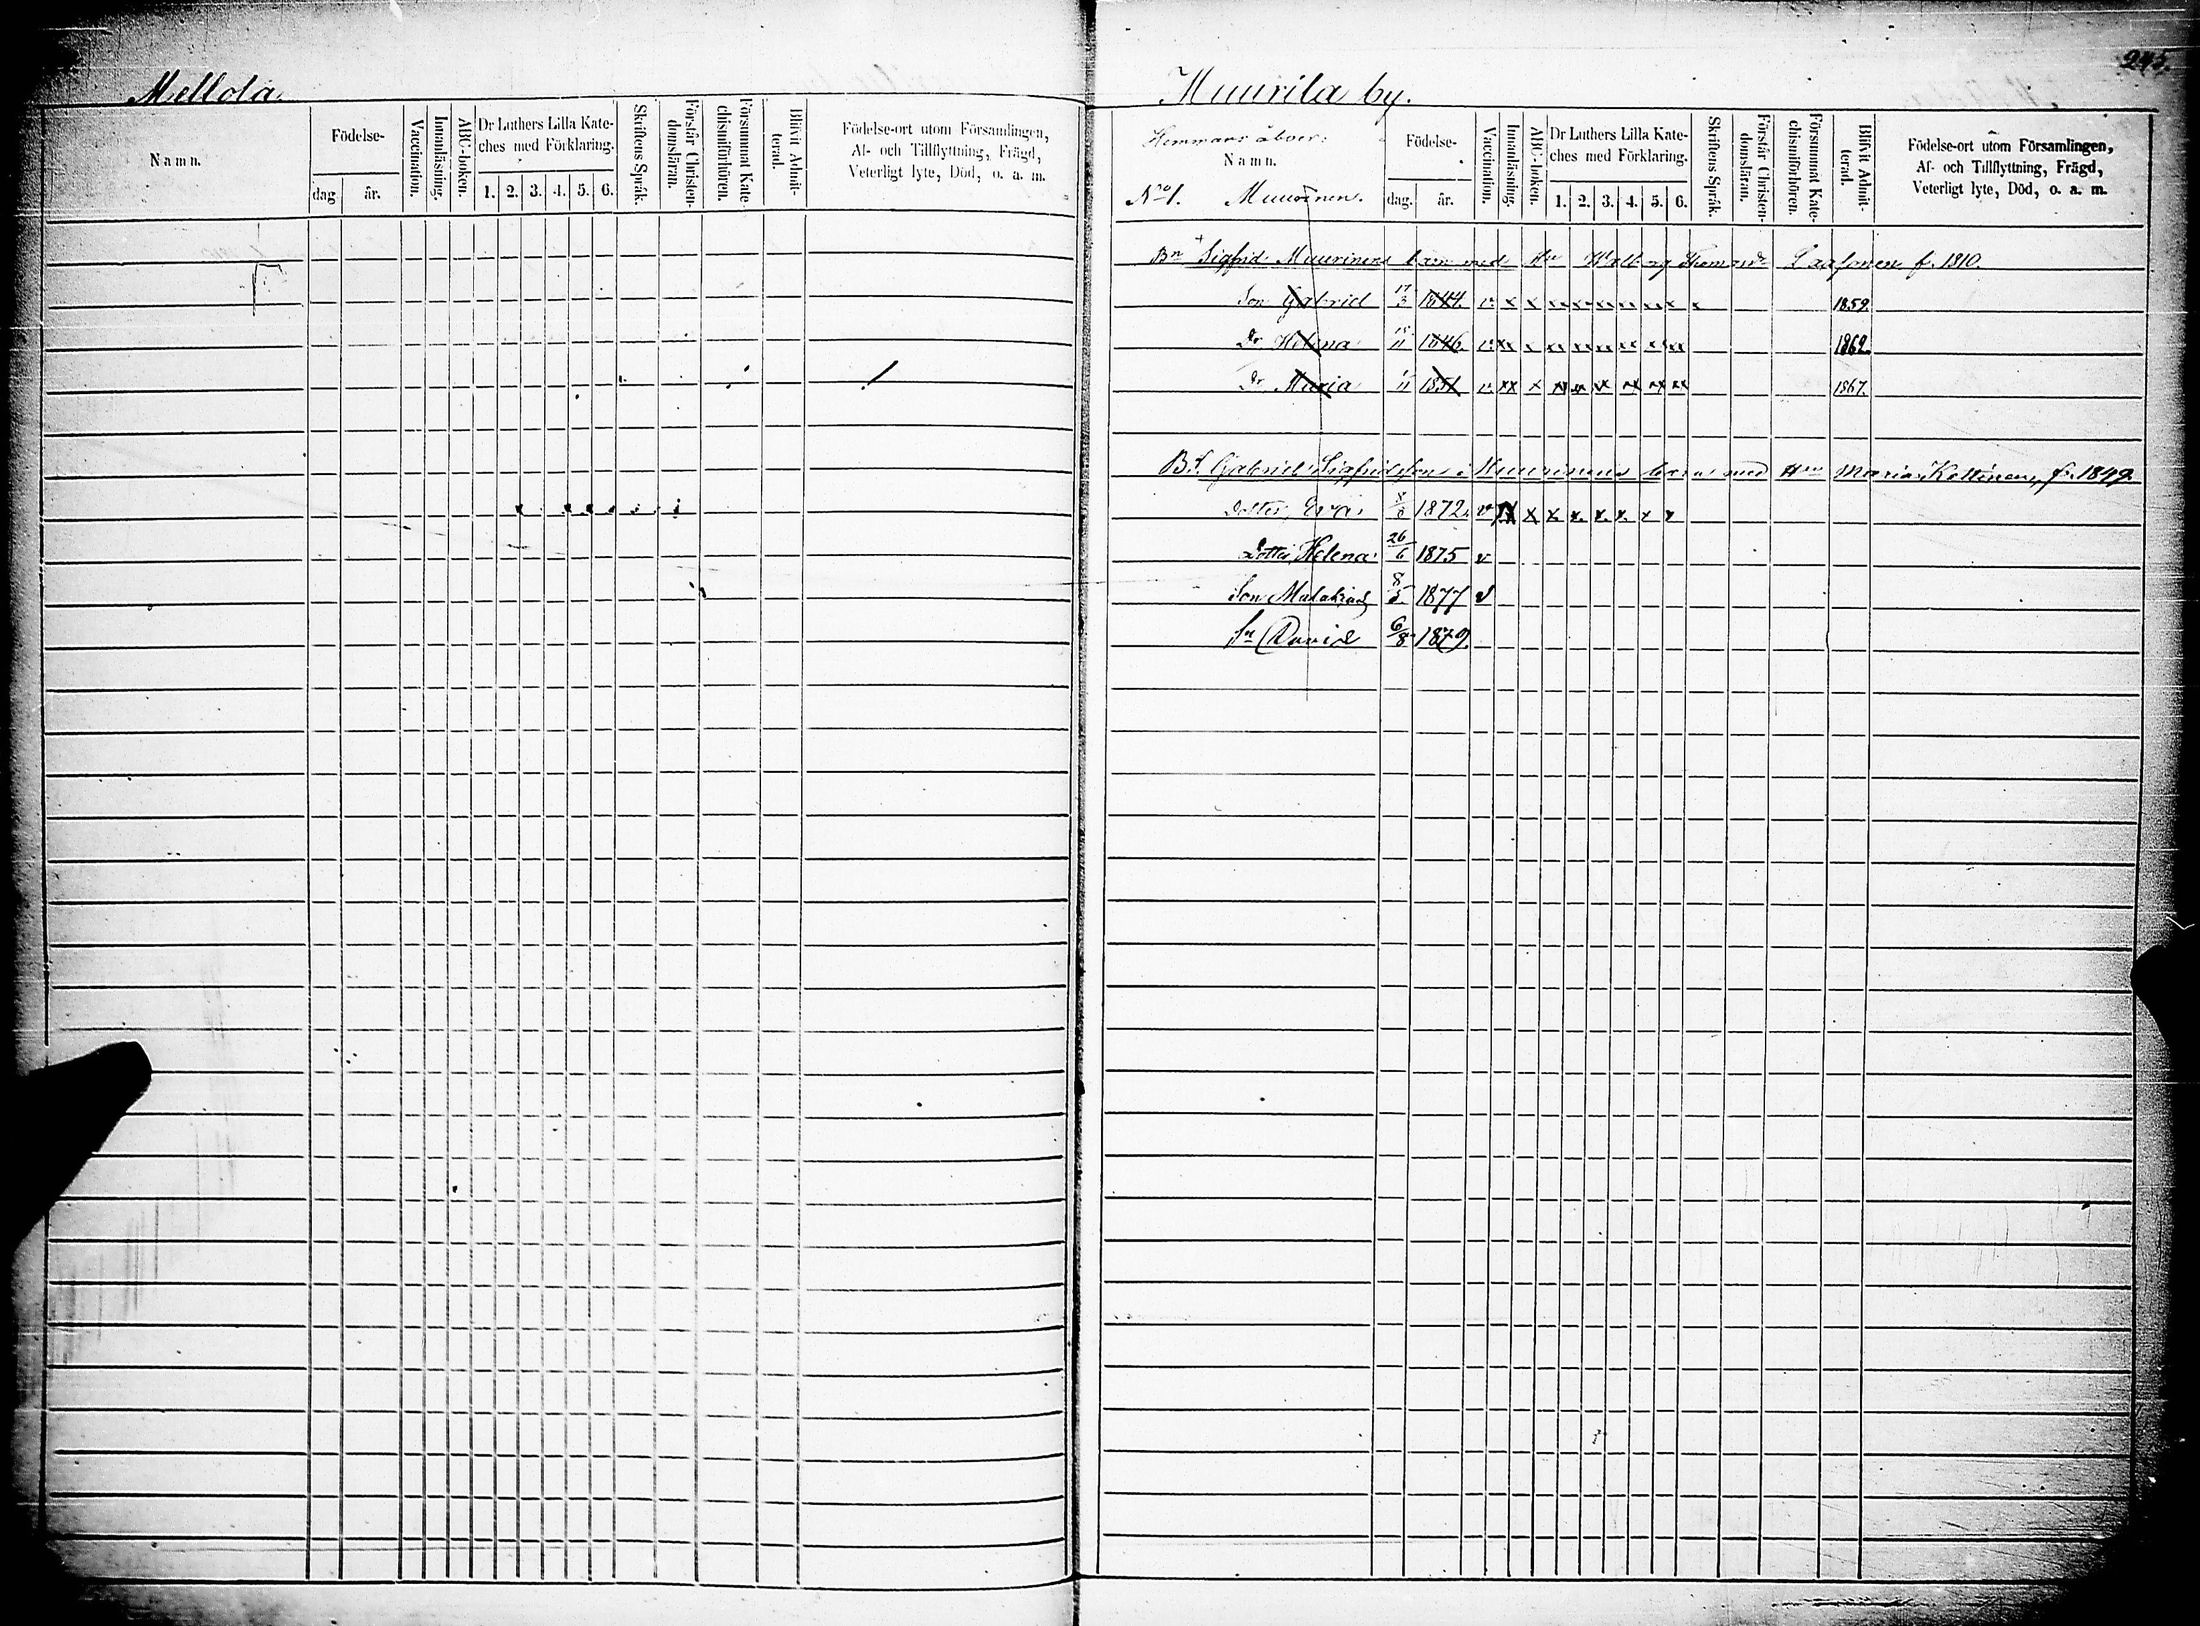 Mellola
Namn.
Födelse-
dag
år.
Vaccination.
Innanläsning.
ABC-boken.
Dr Luthers Lilla Kate-
ches med Förklaring.
1. 2. 3. 4. 5. 6.
Skriftens Språk.
Förstår Christen-
domsläran.
Försummat Kate-
chismiförhören.
Blifvit Admit-
terad.
Födelse-ort utom Församlingen,
Af- och Tillflyttning, Frägd,
Veterligt lyte, Död, o. a. m.
245.
Muurila by.
Hemmans åboer:
Namn.
No 1. Muurinen.
Födelse-
dag.
år.
Vaccination.
Innanläsning.
ABC-boken.
Dr Luthers Lilla Kate-
ches med Förklaring.
1. 2. 3. 4. 5. 6.
Skriftens Språk.
Förstår Christen-
domsläran.
Försummat Kate-
chismiförhören.
Blifvit Admit-
terad.
Födelse-ort utom Församlingen,
Af- och Tillflyttning, Frägd,
Veterligt lyte, Död, o. a. m.
Bn Sigfrid Muurinens barn med Hu Walborg Thomasdr Laasonen f. 1810.
Son Gabriel 17/3 1844. v. x x xx xx xx xx xx x x 1859.
Dr Helena 18/11 1846. v. xx x xx xx xx xx xx xx 1862.
Dr Maria 1/11 1851 v. xx x xx xx xx xx xx xx 1867.
BS. Gabriel Sigfridsson Muurinens barn med Hu Maria Kettinen, f. 1849.
Dotter, Eva 8/8 1872. v x x x. x. x. x. x x
Dotter, Helena 26/6 1875 v
Son Malakias 8/5 1877 v
Sn David 6/8 1879.